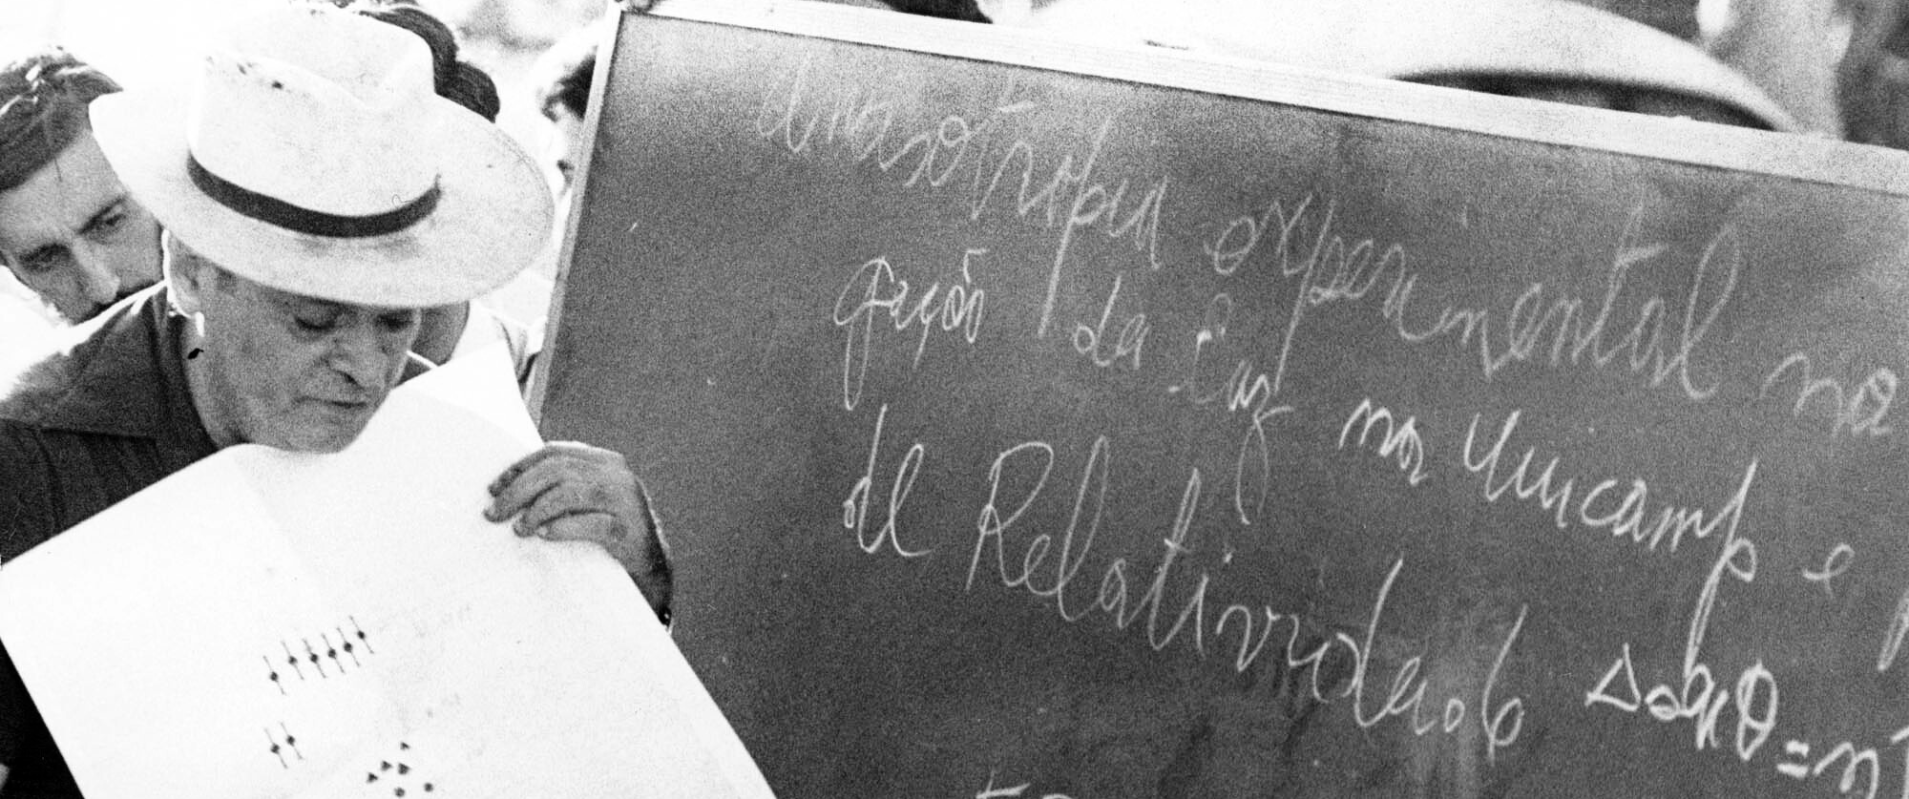 Anisotropia experimental na
gação da luz na Unicamp e
de Relatividade